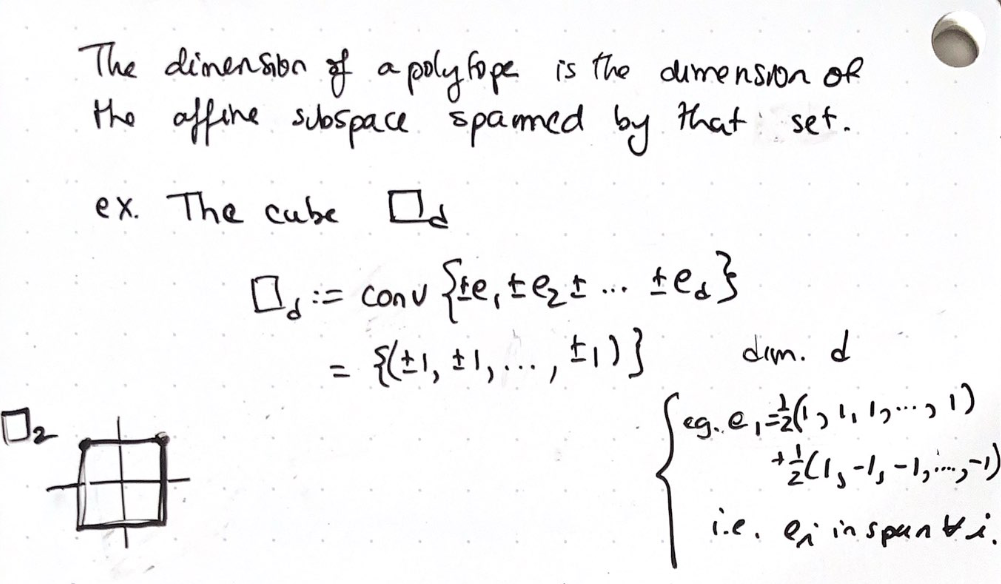 The dimension of a polytope is the dimension of
the affine subspace spanned by that set.
ex. The cube □_d
□_d := conv {±e₁ ± e₂ ± ... ± e_d}
= {(±1, ±1, ..., ±1)} dim. d
□₂
eg. e₁ = ½(1, 1, 1, ..., 1)
+ ½(1, -1, -1, ..., -1)
i.e. e_i in span ∀ i.